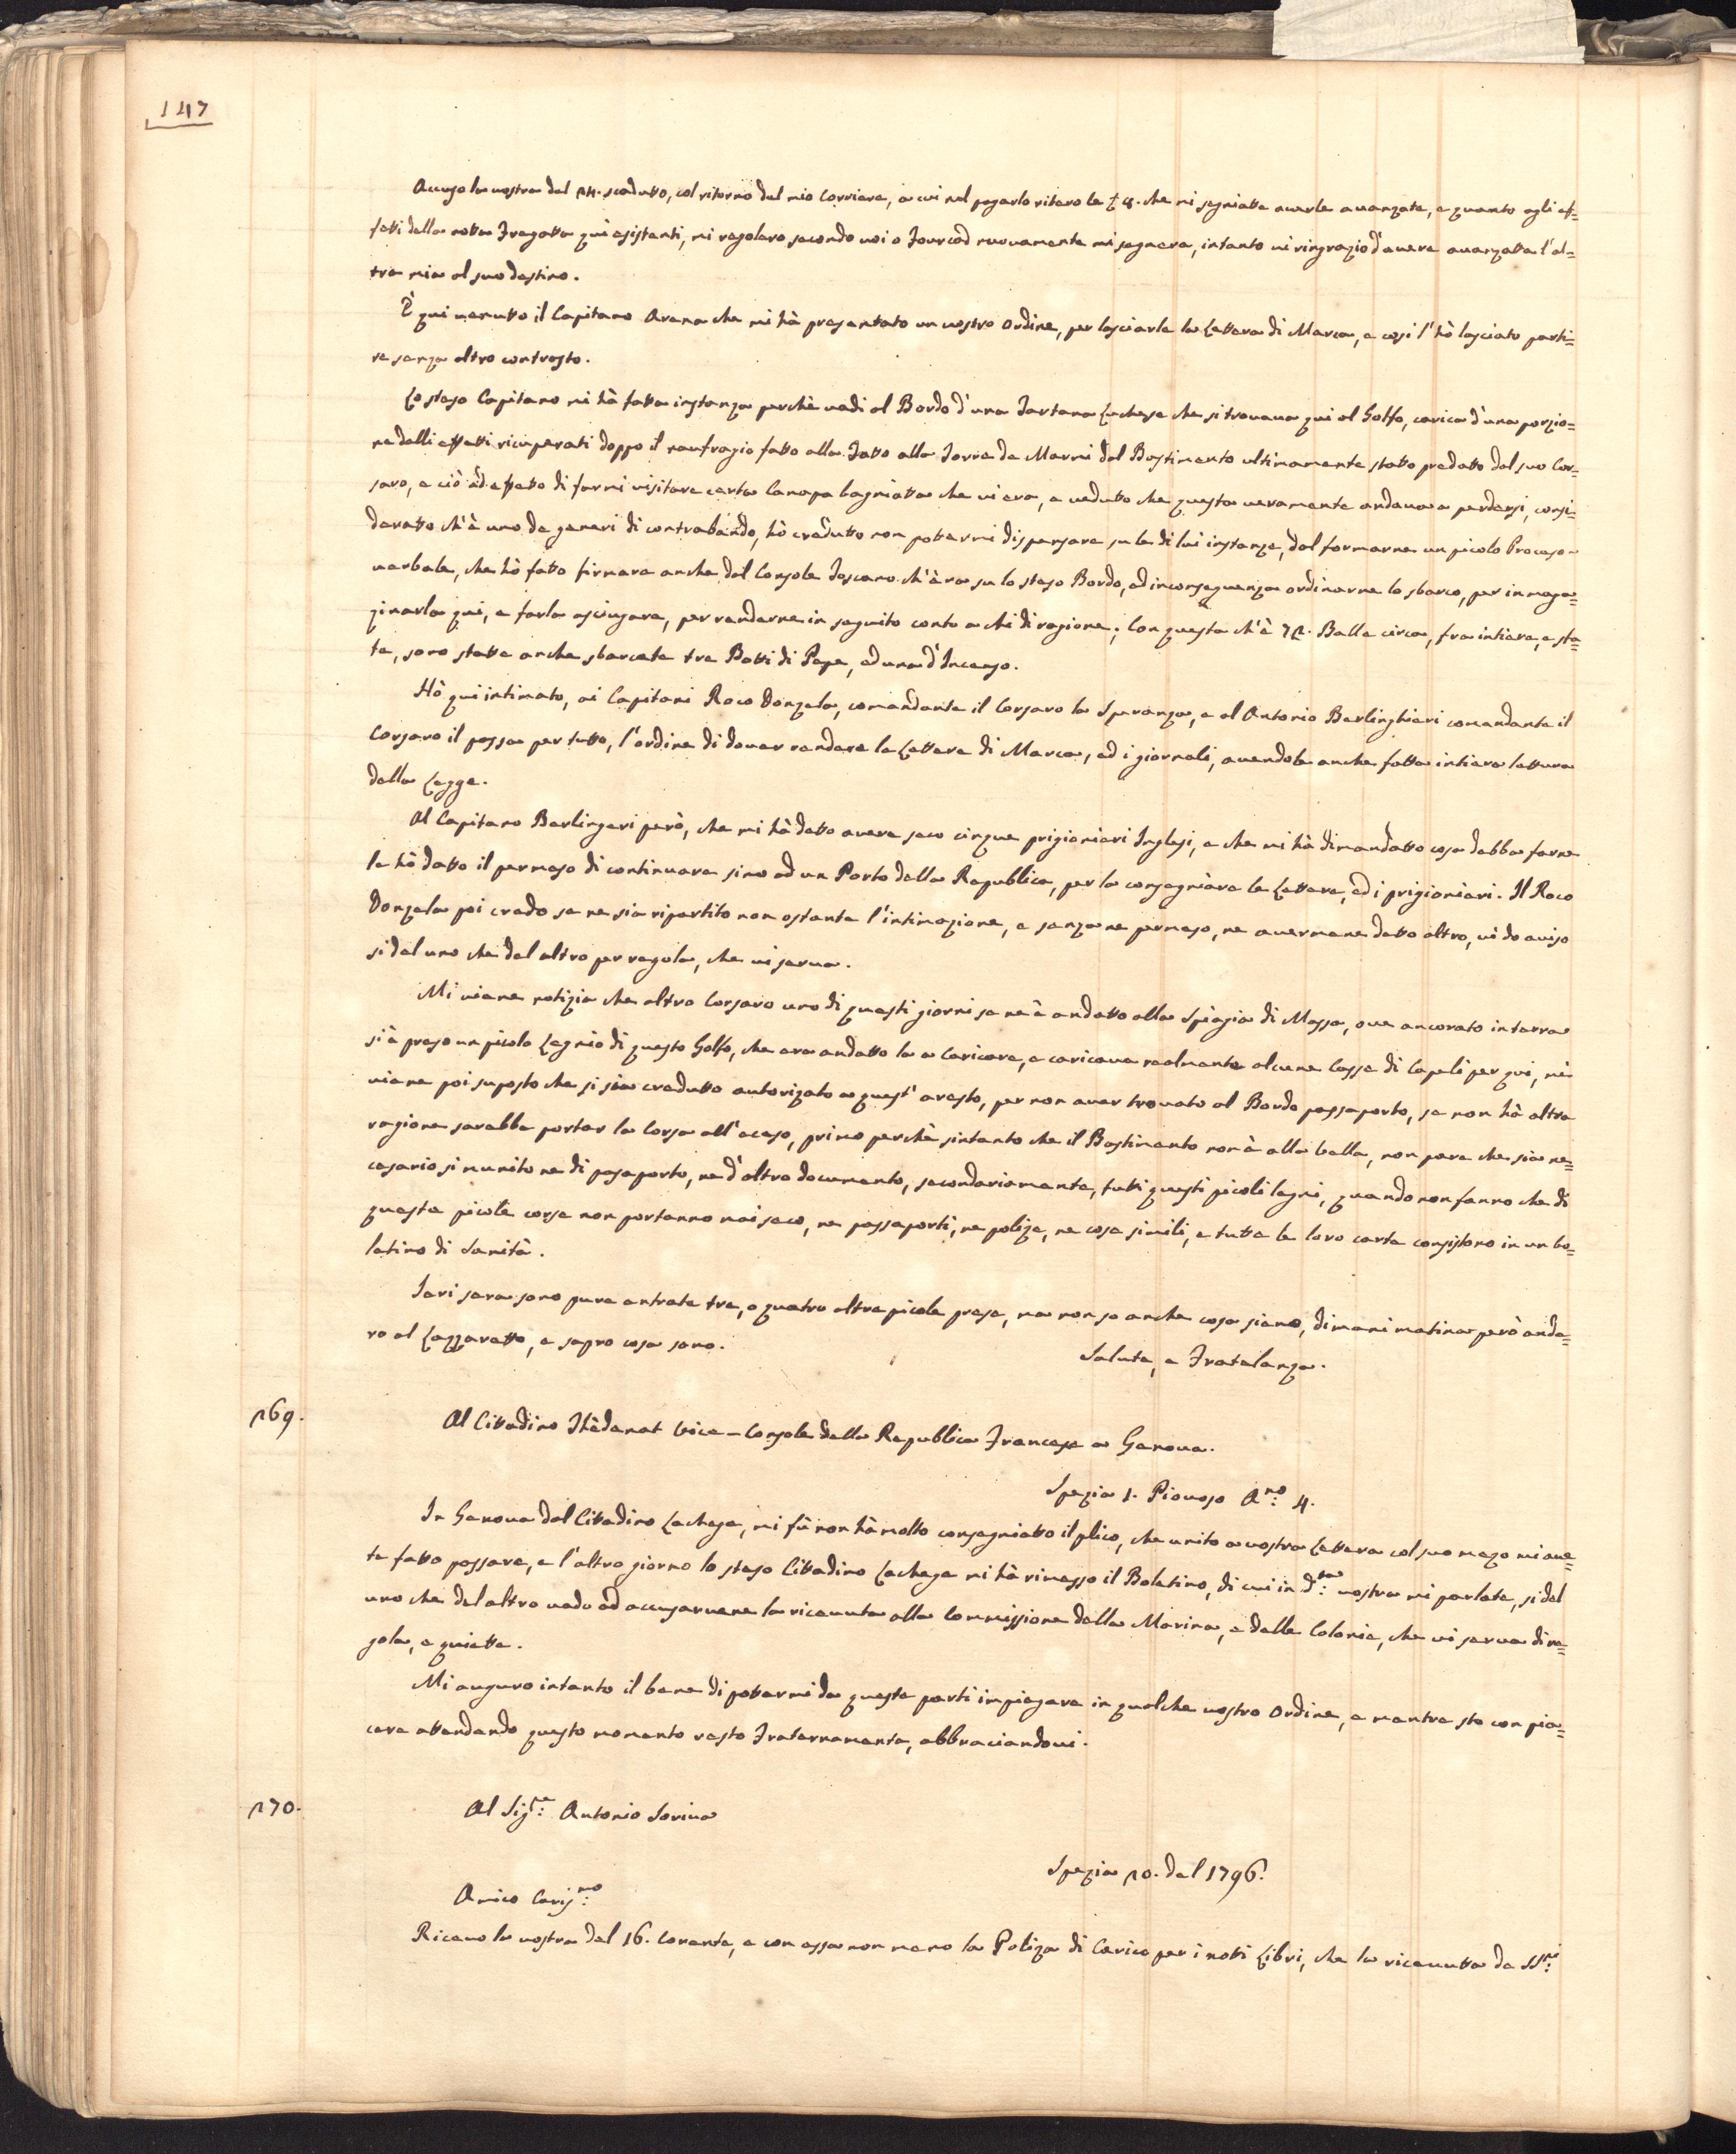 147
Acuso la vostra del 24. scadutto, col ritorno del mio Corriere, a cui nel pagarlo ritero le £ 8. che mi segniatte averle avanzate, e quanto agli ef=
fetti della notta Fregatta quì esistenti, mi regolero secondo voi o Fourcad nuovamente mi segnera, intanto vi ringrazio d'avere avanzatta l'al=
tra mia al suo destino.
È qui venutto il Capitano Arena che mi hà presentato un vostro ordine, per lasciarle la Lettera di Marca, e cosi l'hò lasciato parti=
re senza altro contrasto.
Lo steso Capitano mi hà fatta instanza perchè vadi al Bordo d'una Tartana Luchese che si trovava qui al Golfo, carica d'una porzio=
ne delli effetti ricuperati doppo il naufragio fatto alla Fatto alla Torre de Marmi del Bastimento ultimamente statto predatto dal suo Cor=
saro, e ciò ad effetto di farmi visitare certa Canapa bagniatta che vi era, e vedutto che questa veramente andava a perdersi, consi=
deratto ch'è uno de generi di contrabando, hò credutto non pottermi dispensare su le di lui instanze, dal formarne un picolo Proceso
verbale, che hò fatto firmare anche dal Console Toscano ch'era su lo steso Bordo, ed inconseguenza ordinarne lo sbarco, per in maga=
zinarla qui, e farla asciugare, per renderne in seguito conto a chi di ragione; Con questa ch'è 72. Balle circa, fra intiere, e sfa=
te, sono statte anche sbarcate tre Botti di Pepe, ed una d'Incenso.
Hò qui intimato, ai Capitani Roco Donzela, comandante il Corsaro la Speranza, e al Antonio Berlinghieri comandante il
Corsaro il passa per tutto, l'ordine di dover rendere le Lettere di Marca, ed i giornali, avendole anche fatta intiera lettura
della Legge.
Al Capitano Berlingeri però, che mi hà detto avere seco cinque prigionieri Inglesi, e che mi hà dimandatto cosa debba farne
le hò datto il permeso di continuare sino ad un Porto della Republica, per la consegniare le Lettere, ed i prigionieri. Il Roco
Donzela poi credo se ne sia ripartito non ostante l'intimazione, e senza ne permeso, ne avermene detto altro, vi do aviso
si del uno che del altro per regola, che vi serva.
Mi viene notizia che altro Corsaro uno di questi giorni se ne è andatto alla Spiagia di Massa, ove ancorato in terra
si è preso un picolo Legnio di questo Golfo, che era andatto la a Caricare, e caricava realmente alcune Casse di Capeli per qui, mi
viene poi suposto che si sia credutto autorizato a quest' aresto, per non aver trovato al Bordo passaporto, se non hà altra
ragione sarebbe portar la Corsa all'aceso, primo perchè sintanto che il Bastimento non è alla vella, non pare che sia ne=
cesario si munito ne di pasaporto, ne d'altro documento, secondariamente, tutti questi picoli legni, quando non fanno che di
queste picole corse non portanno mai seco, ne passaporti, ne polize, ne cose simili, e tutte le loro carte consistono in un bo=
letino di Sanità.
Ieri sera sono pure entrate tre, o quatro altre picole prese, ma non so anche cosa siano, dimani matina però ande=
ro al Lazzaretto, e sapro cosa sono.
Salute, e Fratelanza.
269.
Al Cittadino Thèdenat Vice-Console della Republica Francese a Genova.
Spezia 1. Piovoso A.no 4.
In Genova dal Cittadino Lachese, mi fù non hà molto consegniatto il plico, che unito a vostra Lettera col suo mezo mi ave=
te fatto passare, e l'altro giorno lo steso Cittadino Lachese mi hà rimesso il Boletino, di cui in d.ta vostra mi parlate, si del
uno che del altro vado ad accusarvene la ricevuta alla Commissione della Marina, e delle Colonie, che vi serva di re=
gola, e quiette.
Mi auguro intanto il bene di pottermi da queste parti impiegare in qualche vostro ordine, e mentre sto con pia=
cere attendendo questo momento resto Fraternamente, abbraciandovi.
270.
Al Sig.re Antonio Sorina
Spezia 20. del 1796.
Amico Caris.mo
Ricevo la vostra del 16. Corente, e con essa non meno la Poliza di Carico per i notti Libri, che la ricevutta de SS.ri